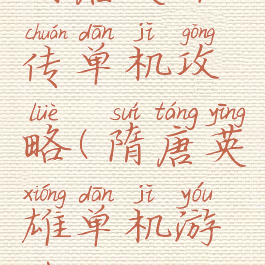 chuán dān jī gōng
传单机攻
lüè suí táng yīng
略(隋唐英
xióng dān jī yóu
雄单机游